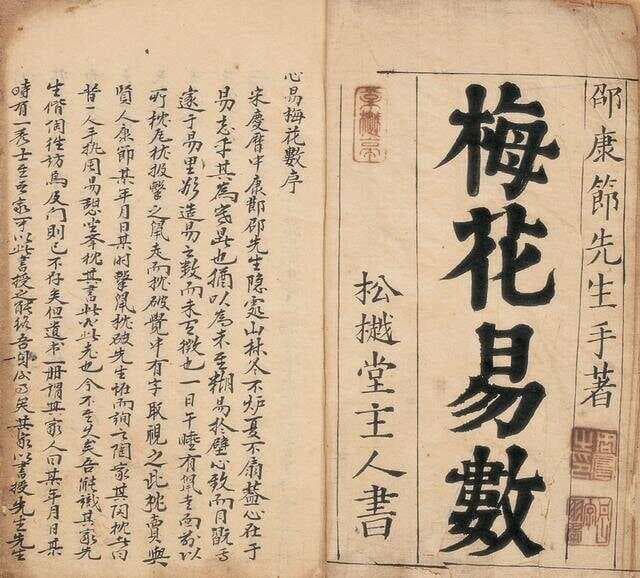 邵康節先生手著
梅花易數
松堂主人書
心易梅花數序
宋慶曆中康節邵先生隐處山林冬不炉夏不扇蓋心在于
易忘乎其為寒暑也猶以為未至糊易於壁心致而目翫焉
邃于易理欲造易之數而未有徵也一日午睡有鼠走而前以
所枕瓦枕投擊之鼠走而枕破覺中有字取視之此枕賣與
賢人康節某年月日某時擊鼠枕破先生怪而詢之陶家其陶枕者曰
昔一人手执周易憩坐举枕其書此必此老也今不至久矣吾能識其家先
生偕陶往访焉及门則已不存矣但遗书一册谓其家人曰某年月日某
時有一秀士至吾家可以此書授之能终吾身矣其家以書授先生先生